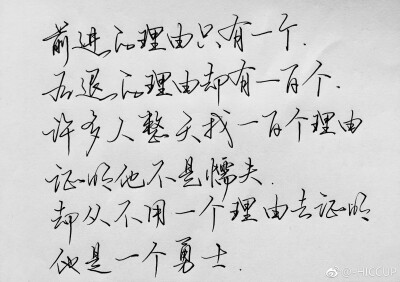 前进的理由只有一个.
后退的理由却有一百个.
许多人整天找一百个理由
证明他不是懦夫.
却从不用一个理由去证明
他是一个勇士.